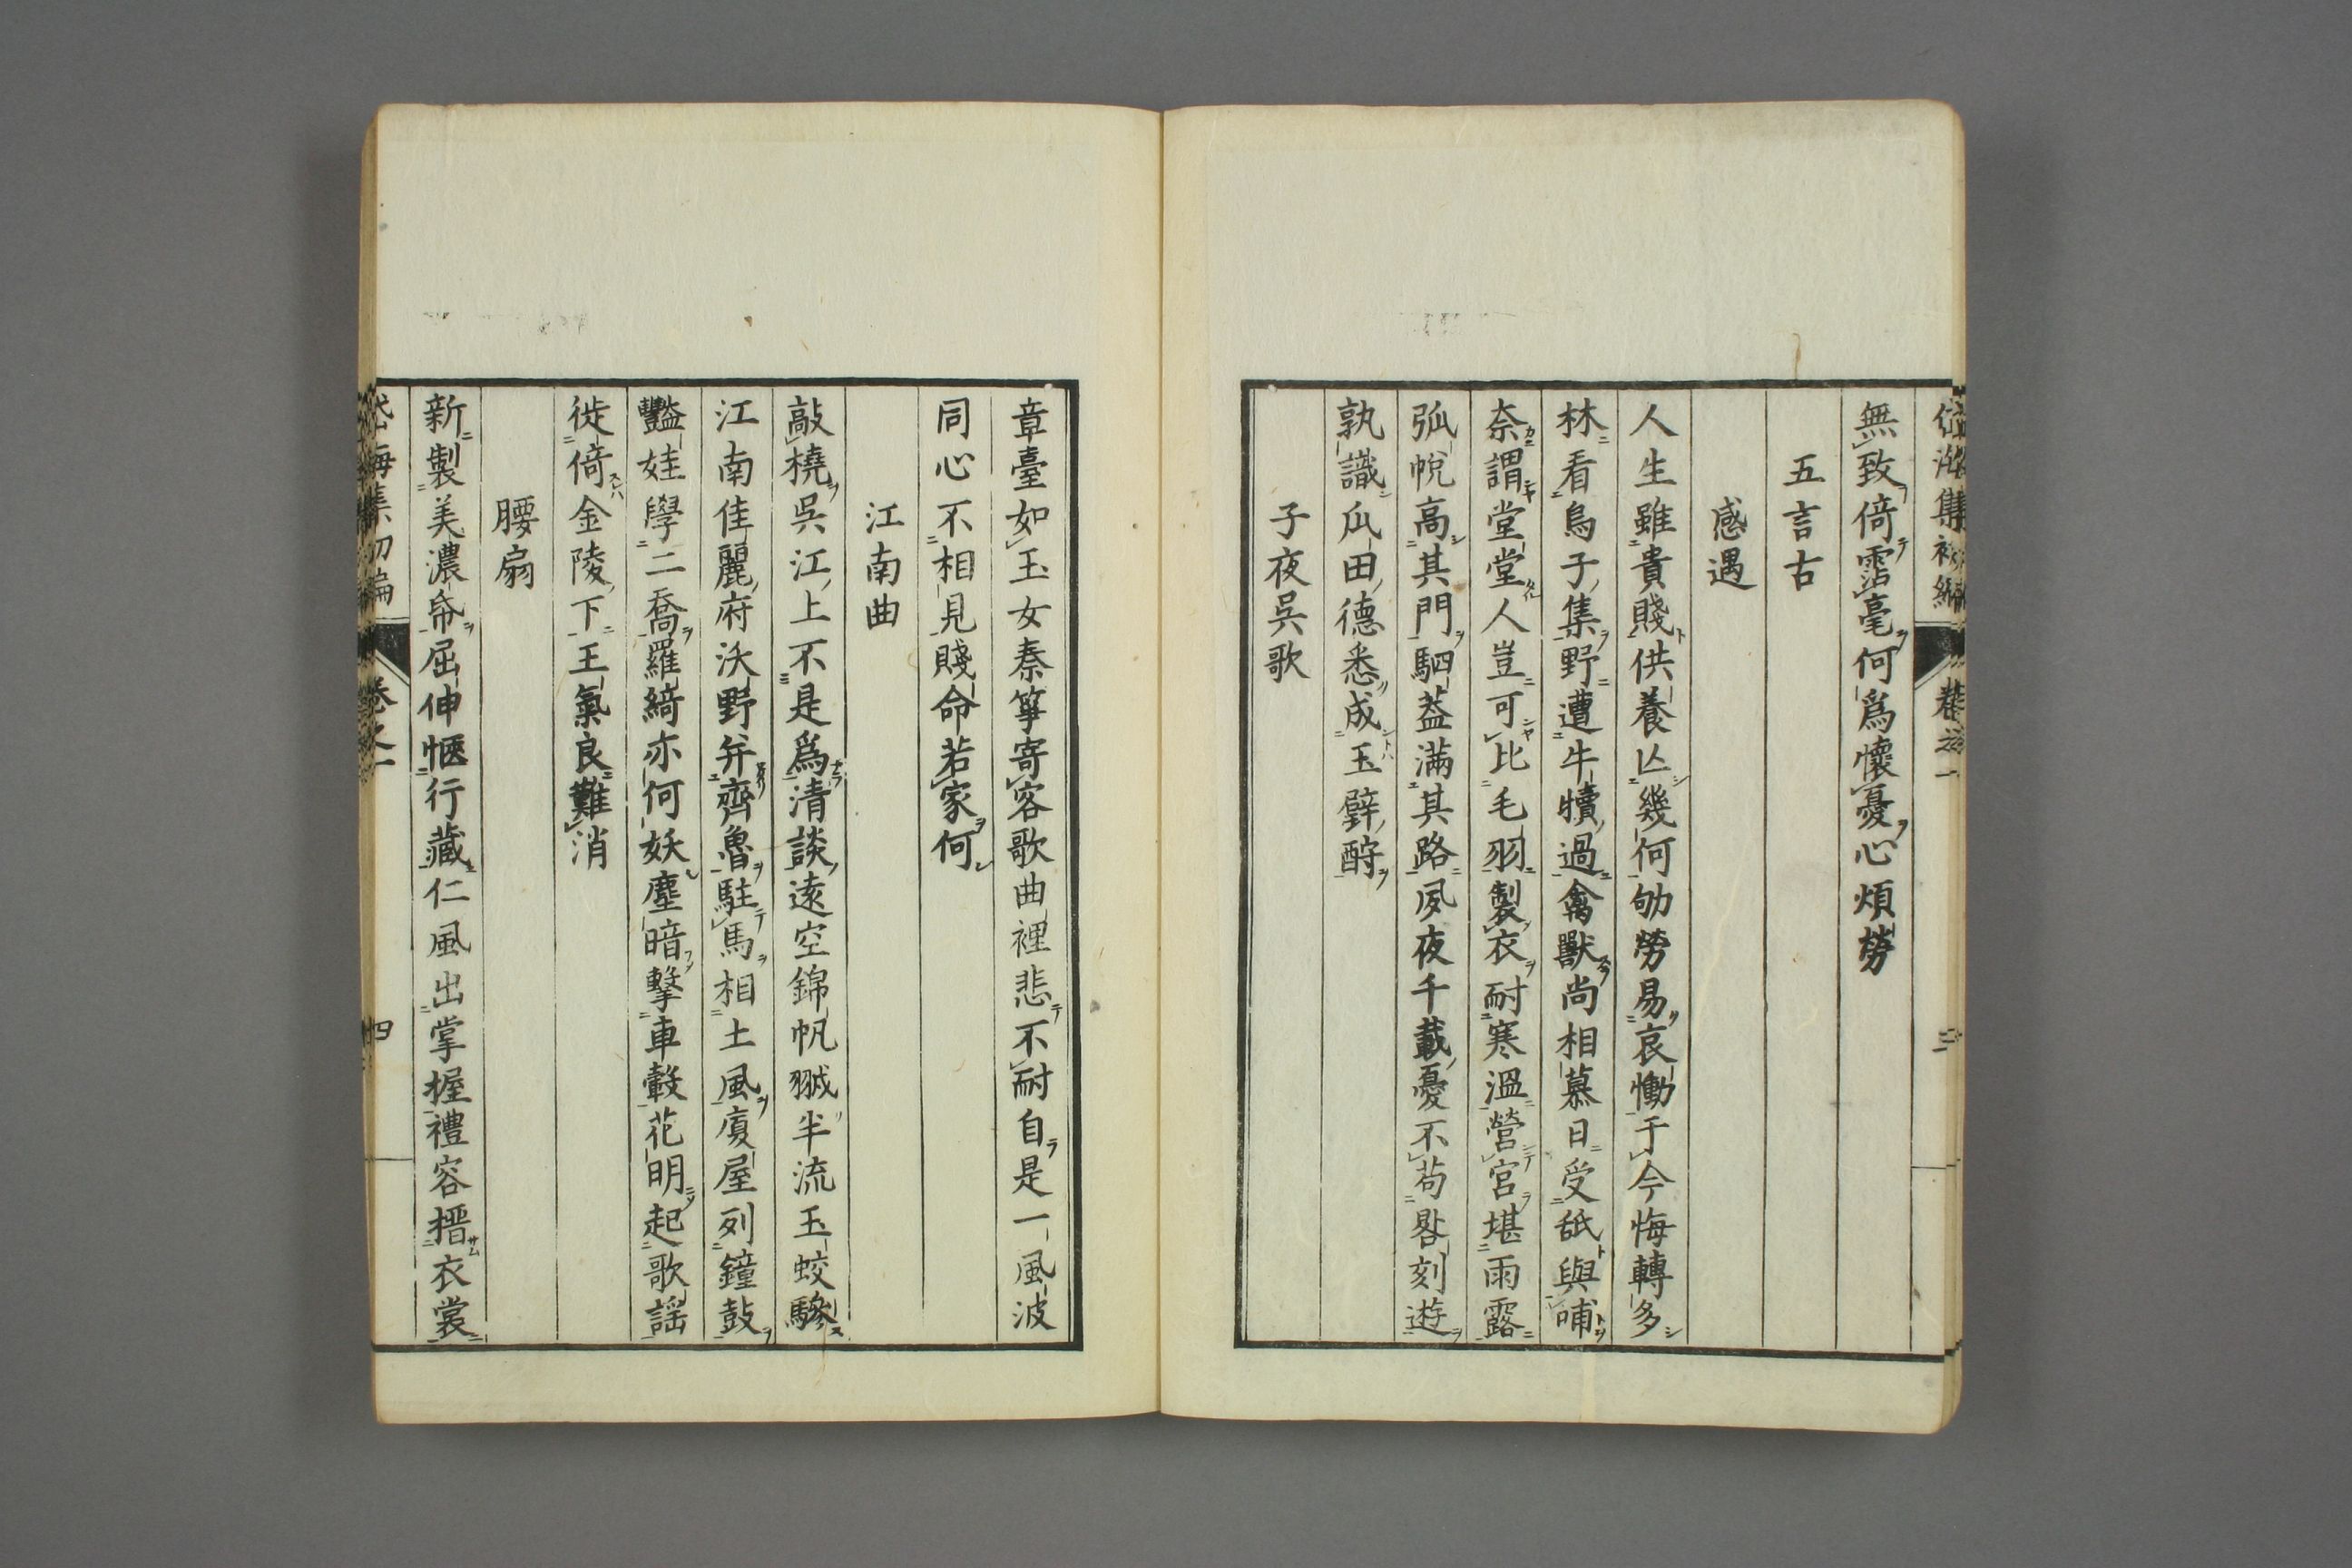 無致倚霑毫何爲懷憂心煩勞
五言古
感遇
人生雖貴賤供養亾幾何劬勞易哀慟于今悔轉多
林看烏子集野遭牛犢過禽獸尚相慕日受舐與哺
奈謂堂堂人豈可比毛羽製衣耐寒溫營宮堪雨露
弧帨高其門駟葢滿其路夙夜千載憂不苟晷刻遊
孰識瓜田德悉成玉璧酧
子夜吳歌
章臺如玉女秦箏寄客歌曲裡悲不耐自是一風波
同心不相見賤命若家何
江南曲
敲橈吳江上不是爲清談遠空錦帆翩半流玉蛟驂
江南佳麗府沃野弁齊魯駐馬相土風廈屋列鐘鼓
豔娃學二喬羅綺亦何妖塵暗擊車轂花明起歌謡
徙倚金陵下王氣良難消
腰扇
新製美濃帋屈伸愜行藏仁風出掌握禮容搢衣裳
集初編 卷之一 四